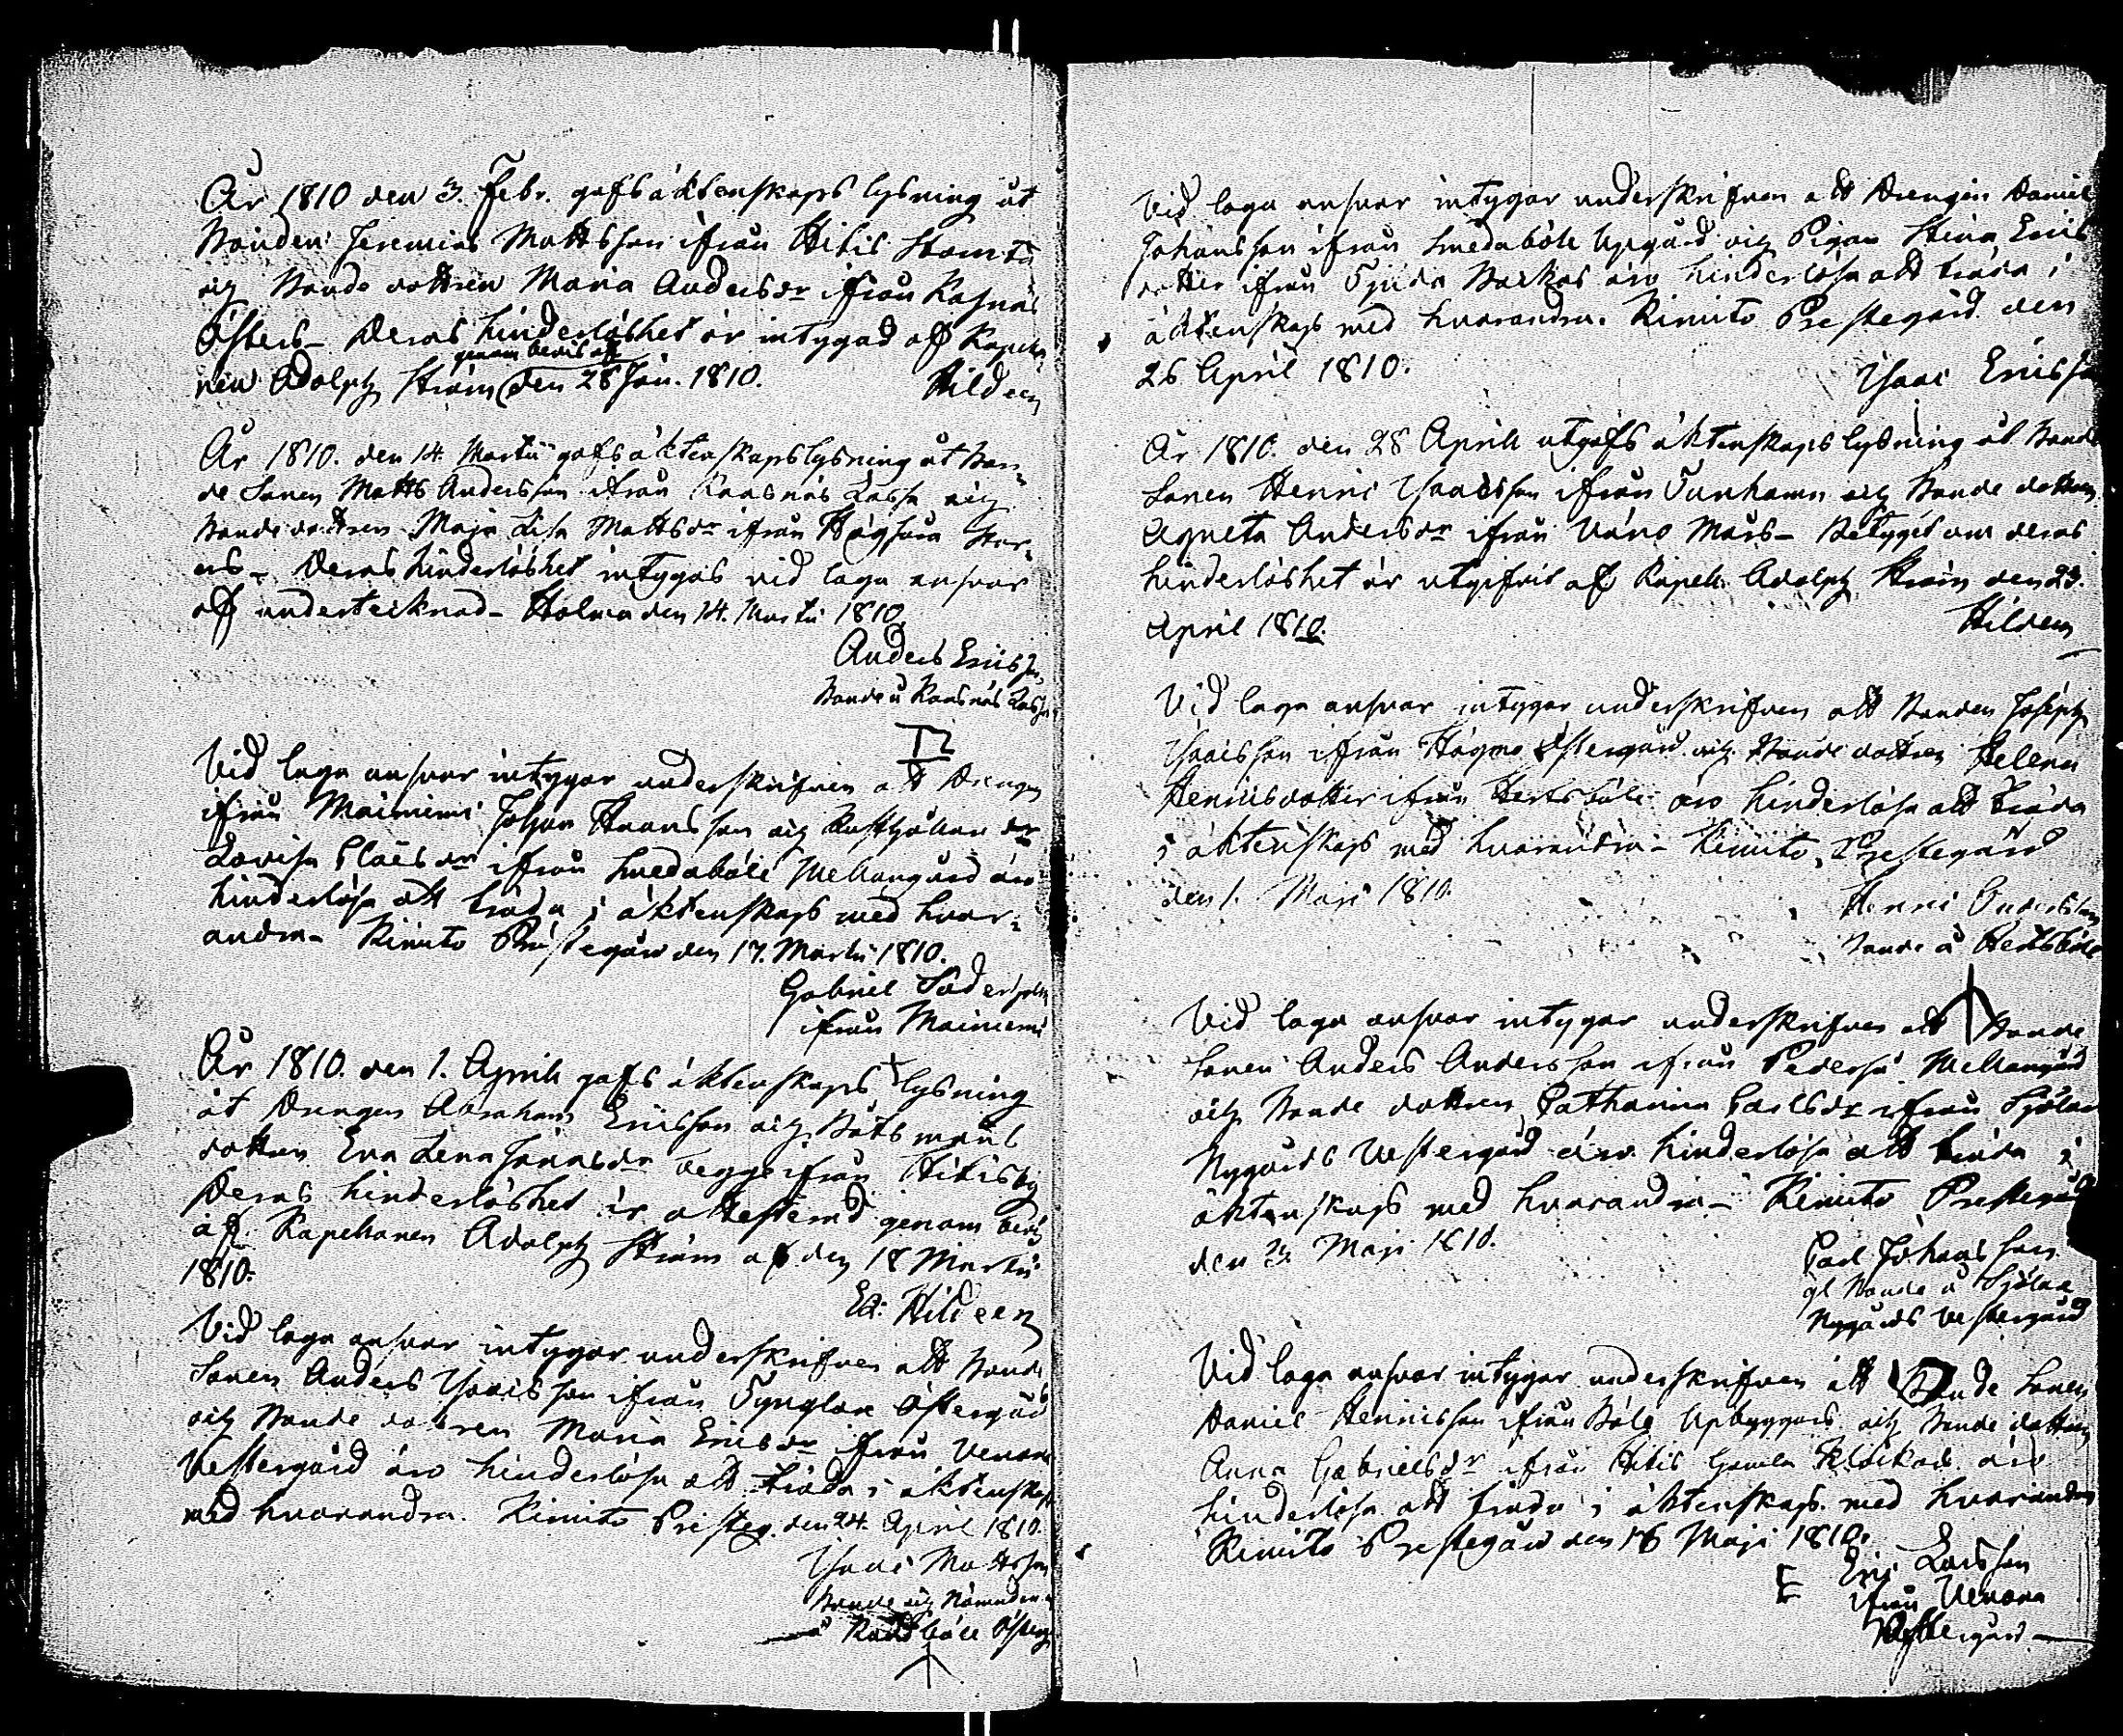 År 1810 den 3. Febr. gafs äktenskaps lysning åt
Bonden Jeremias Mattsson ifrån Hitis Stomts
och Bonde dottren Maria Andersdr ifrån Kasnäs
Östers- Deras hinderlöshet är intygad af Kapella
genom bevis af
nen Adolph Ström den 28 Jan. 1810. Hildeen
År 1810. den 14. Martii gafs äktenskapslysning åt Bon-
de Sonen Matts Andersson ifrån Kaasnäs Lassa och
Bonde dottren Maja Lisa Mattsdr ifrån Högsåra
Deras hinderlöshet intygas vid laga ansvar
af undertecknad- Holma den 14. Martii 1810.
Anders Ericsson
Bonde å Kaasnäs Lassa
Vid laga ansvar intygar underskrifven att Drengen
ifrån Mainiemi Johan Hansson och Rusthållare dr
Lovisa Claesdr ifrån Smedaböle Mellangård äro
hinderlösa att träda i äktenskaps med hvar-
andra- Kimito Prestegård den 17. Martii 1810.
Gabriel
ifrån Mainiemi
År 1810. den 1. Aprill gafs äktenskaps lysning
åt Drengen Abraham Ericsson och Båtsmans
dottren Eva Lena Jonasdr begge ifrån Hitisby
Deras hinderlöshet är attesterad genom bevis
af Kapellanen Adolph Ström af den 18 Martii
1810.
Hildeen
Vid laga ansvar intygar underskrifven att Bonde
Sonen Anders Isacsson ifrån Tynglax Östergård
och Bonde dottren Maria Ericsdr ifrån Venoxa
Vestergård äro hinderlösa att träda i äktenskaps
med hvarandra. Kimito Presteg. den 24. April 1810.
Isac Mattsson
Bonde och Nämndeman
å Österg.
Vid laga ansvar intygar underskrifven att Drengen Daniel
Johansson ifrån Smedaböle Uppgård och Pigan Stina Erics
dotter ifrån Backas äro hinderlösa att träda i
äktenskaps med hvarandra. Kimito Prestegård den
26 April 1810.
Isaac Ericsson
År 1810. den 28 Aprill utgafs äktenskaps lysning åt Bonde
Sonen Henric Isaacsson ifrån Tunhamn och Bonde dottren
Agneta Andersdr ifrån Vänö Mårs- Betyget om deras
hinderlöshet är utgifvit af Kapell. Adolph Ström den 23.
April 1810.
Hildeen
Vid laga ansvar intygar underskrifven att Bonden Joseph
Isacsson ifrån Högmo Östergård och Bonde dottren Helena
Henricsdotter ifrån Hertsböle äro hinderlösa att träda
i äktenskaps med hvarandra- Kimito Prestegård
den 1. Maji 1810.
Henric Andersson
Bonde å Hertsböle
Vid laga ansvar intygar underskrifven att Bonde
Sonen Anders Andersson ifrån Pederså Mellangård
och Bonde dottren Catharina Carlsdr ifrån Sjölax
Nygårds Vestergård äro hinderlösa att träda i
äktenskaps med hvarandra- Kimito Prestegård
den 3 Maji 1810.
Carl Johansson
gl Bonde å Sjölax
Nygårds Vestergård
Vid laga ansvar intygar underskrifven att Bonde Sonen
Daniel Henricsson ifrån Böle Upbyggars och Bonde dottren
Anna Gabrielsdr ifrån Hitis Gamla Klockars äro
hinderlösa att träda i äktenskaps med hvarandra
Kimito Prestegård den 16 Maji 1810.
E Eric Larsson
ifrån Venoxa
Vestergård